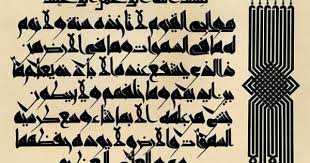 هو الحي القيوم لا تأخذه سنة ولا نوم
له ما في السموات وما في الأرض من
ذا الذي يشفع عنده إلا بإذنه يعلم ما
بين أيديهم وما خلفهم ولا يحيطون
بشيء من علمه إلا بما شاء وسع كرسيه
السموات والأرض ولا يؤوده حفظهما